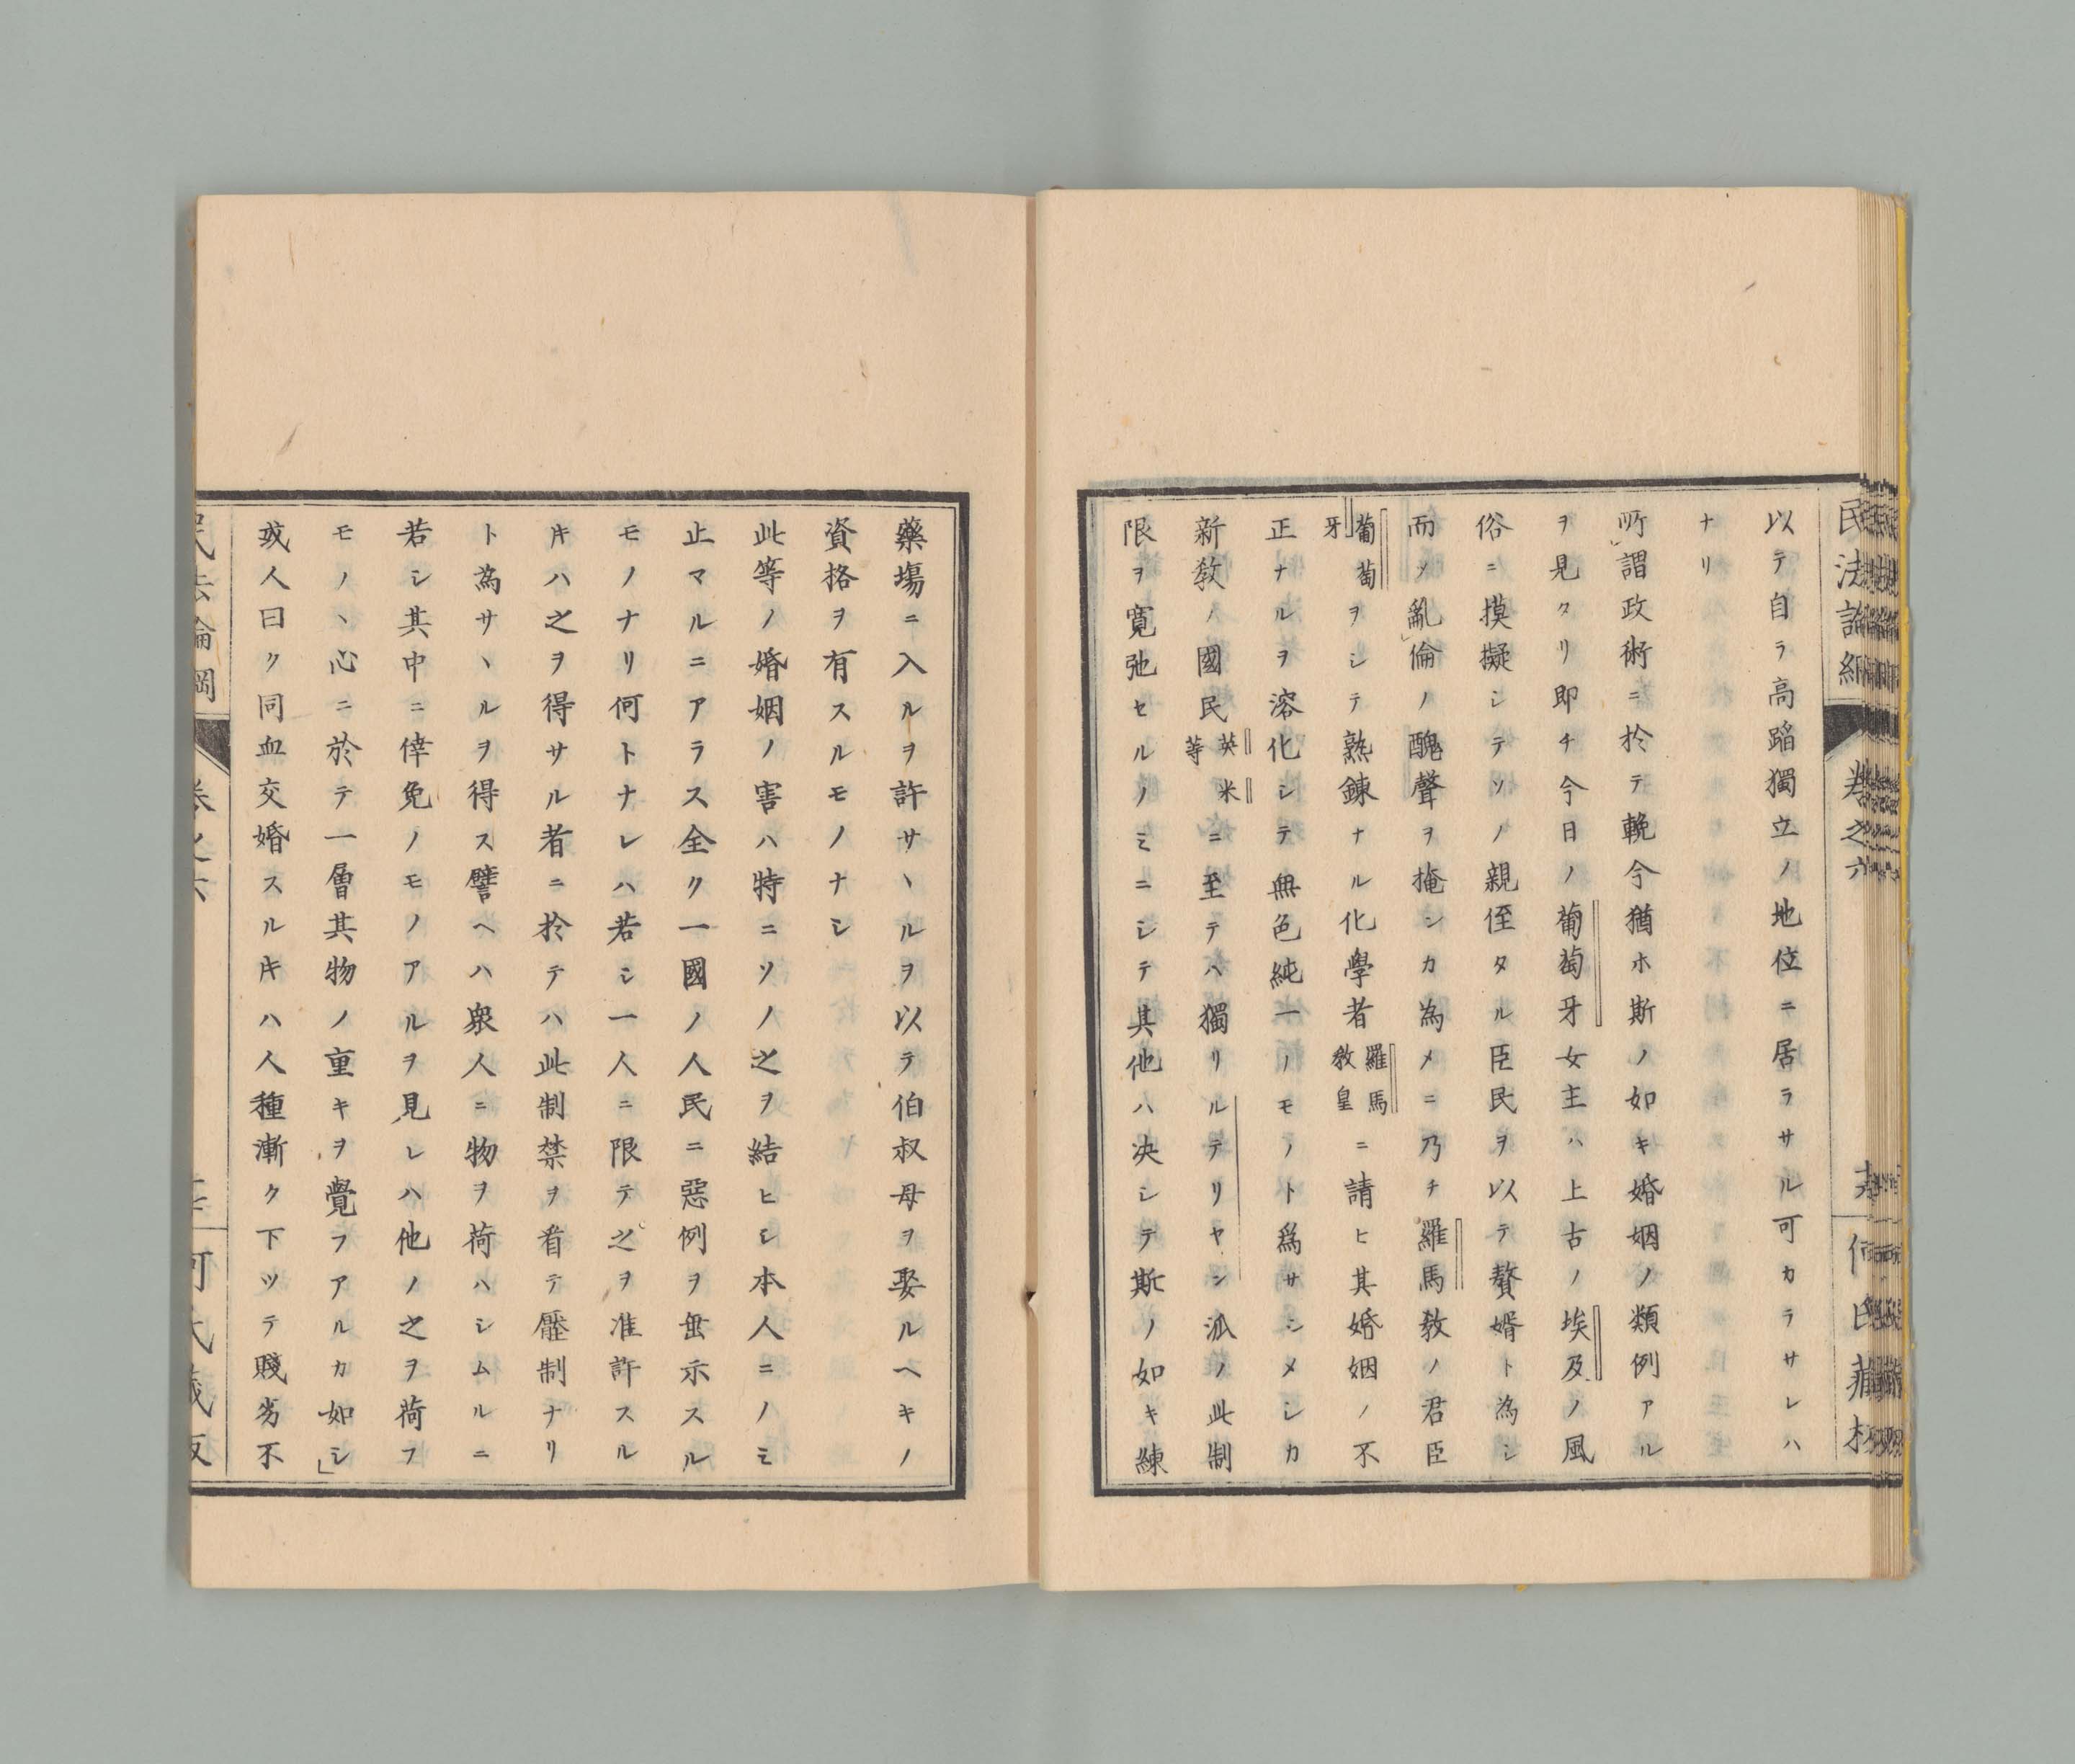 民法論綱
卷之六
何氏藏板
以テ自ラ高蹈獨立ノ地位ニ居ラサル可カラサレハ
ナリ
所謂政術ニ於テ輓今猶ホ斯ノ如キ婚姻ノ類例アル
ヲ見タリ即チ今日ノ葡萄牙女主ハ上古ノ埃及ノ風
俗ニ摸擬シテソノ親侄タル臣民ヲ以テ贅婿ト為シ
而ノ亂倫ノ醜聲ヲ掩ンカ為メニ乃チ羅馬教ノ君臣
葡萄牙ヲシテ熟鍊ナル化學者羅馬教皇ニ請ヒ其婚姻ノ不
正ナルヲ溶化シテ無色純一ノモノト爲サシメシカ
新教ノ國民英米等ニ至テハ獨リルテリヤン派ノ此制
限ヲ寛弛セルノミニシテ其他ハ决シテ斯ノ如キ練
藥場ニ入ルヲ許サヽルヲ以テ伯叔母ヲ娶ルヘキノ
資格ヲ有スルモノナシ
此等ノ婚姻ノ害ハ特ニソノ之ヲ結ヒシ本人ニノミ
止マルニアラス全ク一國ノ人民ニ惡例ヲ垂示スル
モノナリ何トナレハ若シ一人ニ限テ之ヲ准許スル
キハ之ヲ得サル者ニ於テハ此制禁ヲ看テ壓制ナリ
ト為サヽルヲ得ス譬ヘハ衆人ニ物ヲ荷ハシムルニ
若シ其中ニ倖免ノモノアルヲ見レハ他ノ之ヲ荷フ
モノヽ心ニ於テ一層其物ノ重キヲ覺フアルカ如シ」
或人曰ク同血交婚スルキハ人種漸ク下ツテ賤劣不
民法論綱
卷之六
何氏藏板